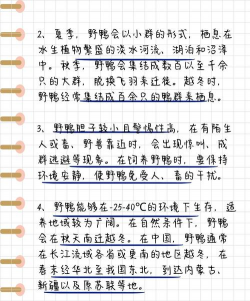 2、夏季，野鸭会以小群的形式，栖息在
水生植物繁盛的淡水河流、湖泊和沼泽
中。秋季，野鸭会集结成数百以至千余
只的大群，脱换飞羽来迁徙。越冬时，
野鸭经常集结成百余只的鸭群来栖息。
3、野鸭胆子较小且警惕性高，在有陌生
人或畜、野兽靠近时，会出现惊叫、成
群逃避等现象。在饲养野鸭时，要保持
环境安静，使野鸭免受人、畜的干扰。
4、野鸭能够在-25-40℃的环境下生存，适
养地域较为广阔。在自然条件下，野鸭
会在秋天南迁越冬。在中国，野鸭通常
在长江流域各省或更南的地区越冬，在
春末经华北至我国东北，到达内蒙古、
新疆以及原苏联等地。